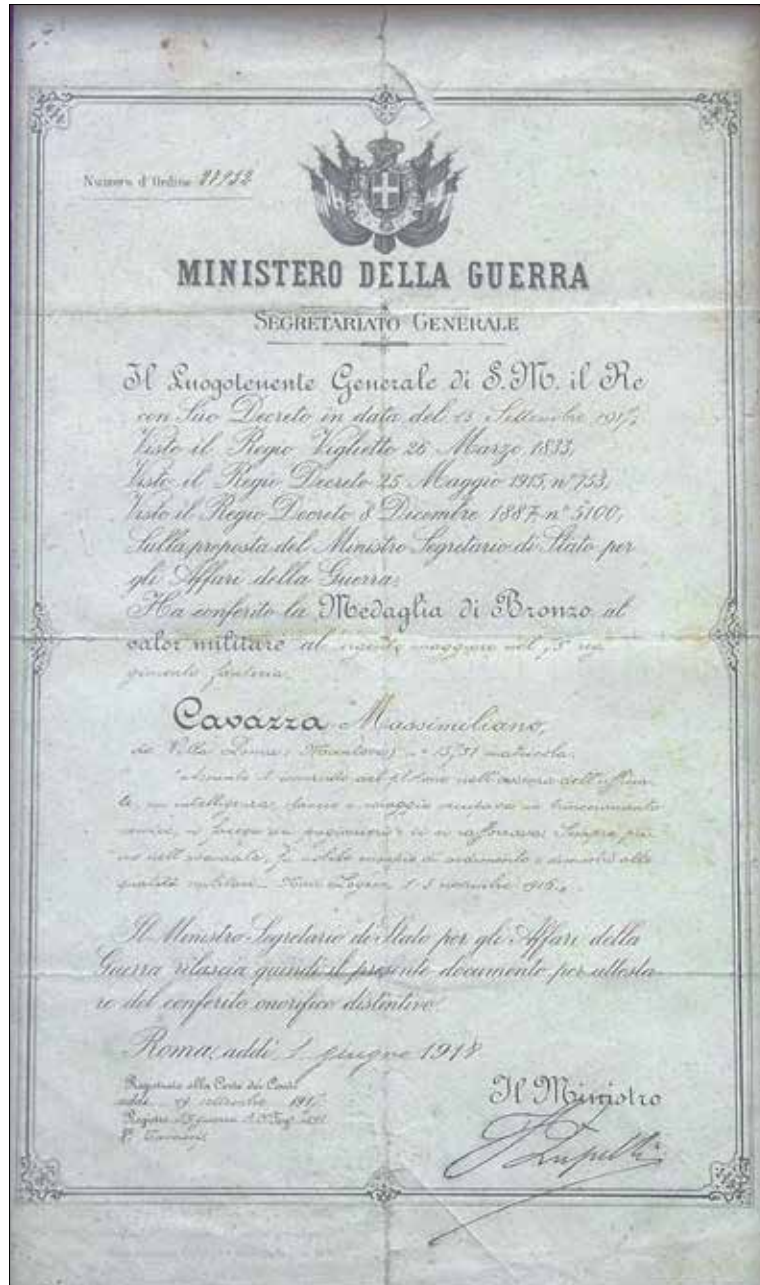 Numero d'Ordine
MINISTERO DELLA GUERRA
SEGRETARIATO GENERALE
Il Luogotenente Generale di S.M. il Re
con Suo Decreto in data del 13 Settembre 1917,
Visto il Regio Viglietto 26 Marzo 1833,
Visto il Regio Decreto 25 Maggio 1915, n° 753,
Visto il Regio Decreto 8 Dicembre 1887, n° 5100,
Sulla proposta del Ministro Segretario di Stato per
gli Affari della Guerra;
Ha conferito la Medaglia di Bronzo al
valor militare al maggiore nel reg
gimento fanteria,
Cavazza Massimiliano,
da Villa matricola.
"Assunto il comando del plotone nell'assenza dell'ufficia
le, con intelligenza, e coraggio occupava un trinceramento
nemico, vi faceva dei prigionieri e vi si rafforzava. Sempre pri
mo nell'avanzata, fu nobile esempio di ardimento e dimostrò alte
qualità militari. 1-3 novembre 1916."
Il Ministro Segretario di Stato per gli Affari della
Guerra rilascia quindi il presente documento per attesta
re del conferito onorifico distintivo.
Roma, addì 1 giugno 1918
Registrato alla Corte dei Conti
addì settembre 1917
Registro guerra
Il Ministro